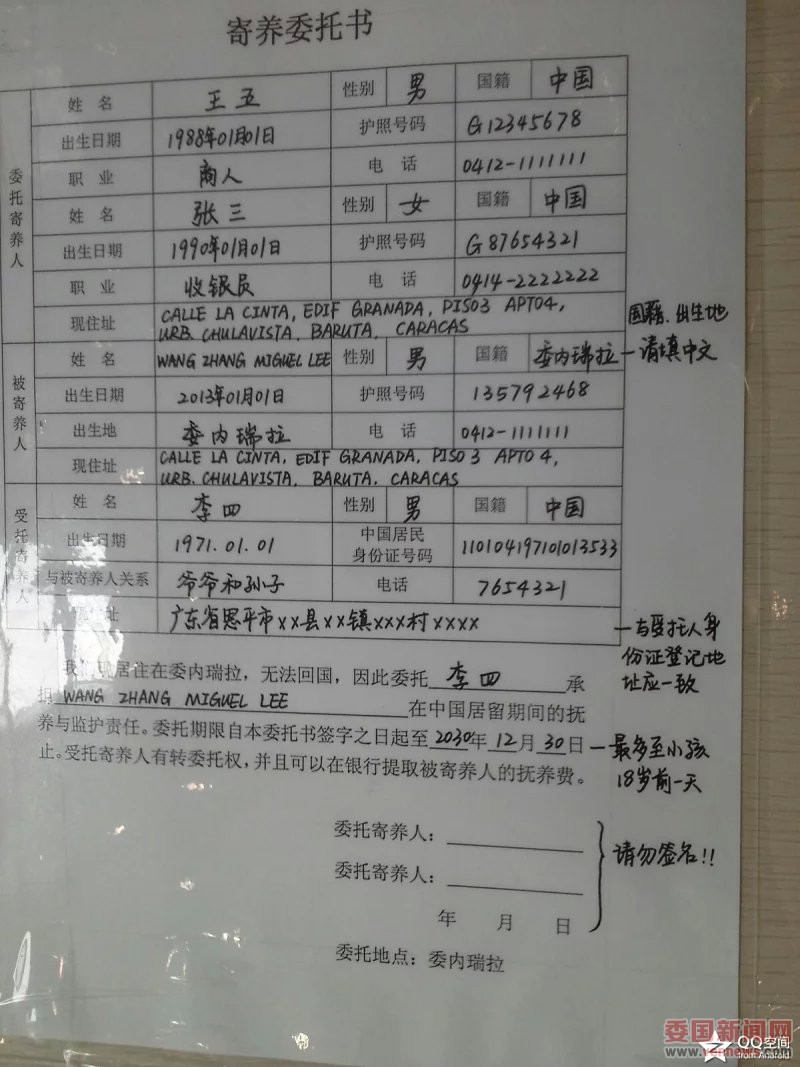 寄养委托书
委托寄养人
姓 名 王五 性别 男 国籍 中国
出生日期 1988年01月01日 护照号码 G12345678
职 业 商人 电 话 0412-1111111
姓 名 张三 性别 女 国籍 中国
出生日期 1990年01月01日 护照号码 G87654321
职 业 收银员 电 话 0414-2222222
现住址 CALLE LA CINTA, EDIF GRANADA, PISO3 APTO4,
URB. CHULAVISTA, BARUTA, CARACAS
国籍、出生地
被寄养人
姓 名 WANG ZHANG MIGUEL LEE 性别 男 国籍 委内瑞拉 — 请填中文
出生日期 2013年01月01日 护照号码 135792468
出生地 委内瑞拉 电 话 0412-1111111
现住址 CALLE LA CINTA, EDIF GRANADA, PISO 3 APTO 4,
URB. CHULAVISTA, BARUTA, CARACAS
受托寄养人
姓 名 李四 性别 男 国籍 中国
出生日期 1971.01.01 中国居民
身份证号码 110104197101013533
与被寄养人关系 爷爷和孙子 电话 7654321
址 广东省恩平市××县××镇×××村××××
—与受托人身
份证登记地
址应一致
我 现居住在委内瑞拉，无法回国，因此委托 李四 承
担 WANG ZHANG MIGUEL LEE 在中国居留期间的抚
养与监护责任。委托期限自本委托书签字之日起至 2030年 12 月 30 日
止。受托寄养人有转委托权，并且可以在银行提取被寄养人的抚养费。
— 最多至小孩
18岁前一天
委托寄养人：
委托寄养人：
请勿签名!!
年 月 日
委托地点：委内瑞拉
委国新闻网
www.vennews.com
QQ空间
from Android